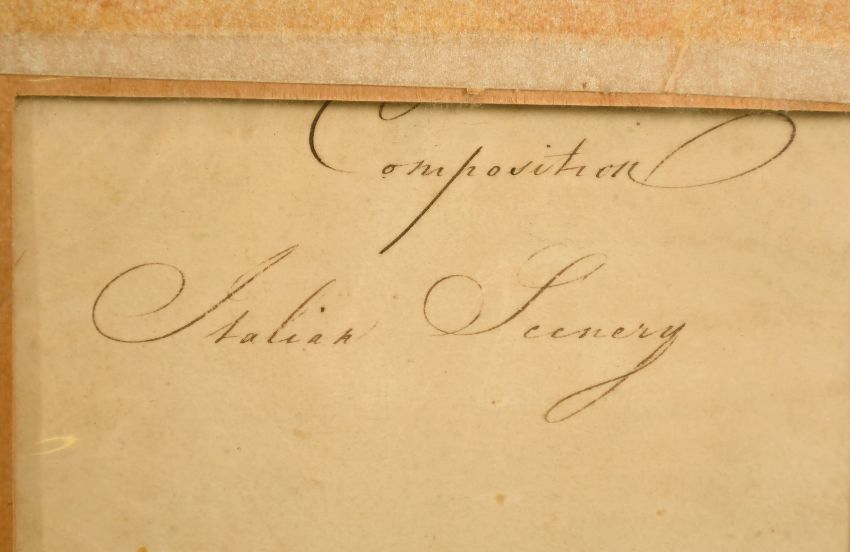 Composition
Italian Scenery